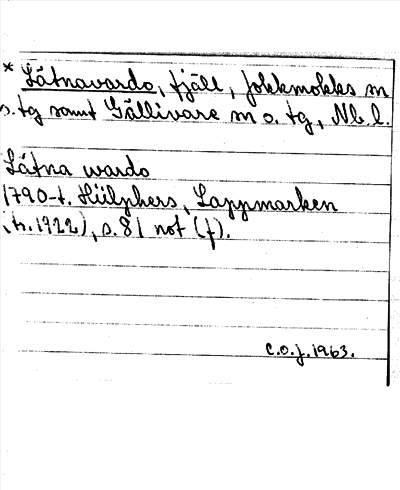 * Låtnavardo, fjäll, Jokkmokks sn
o. tg samt Gällivare sn o. tg, Nb. l.
Låtna wardo
1790-t. Hülphers, Lappmarken
(tr. 1922), s. 81 not (f).
C.O.J. 1963.